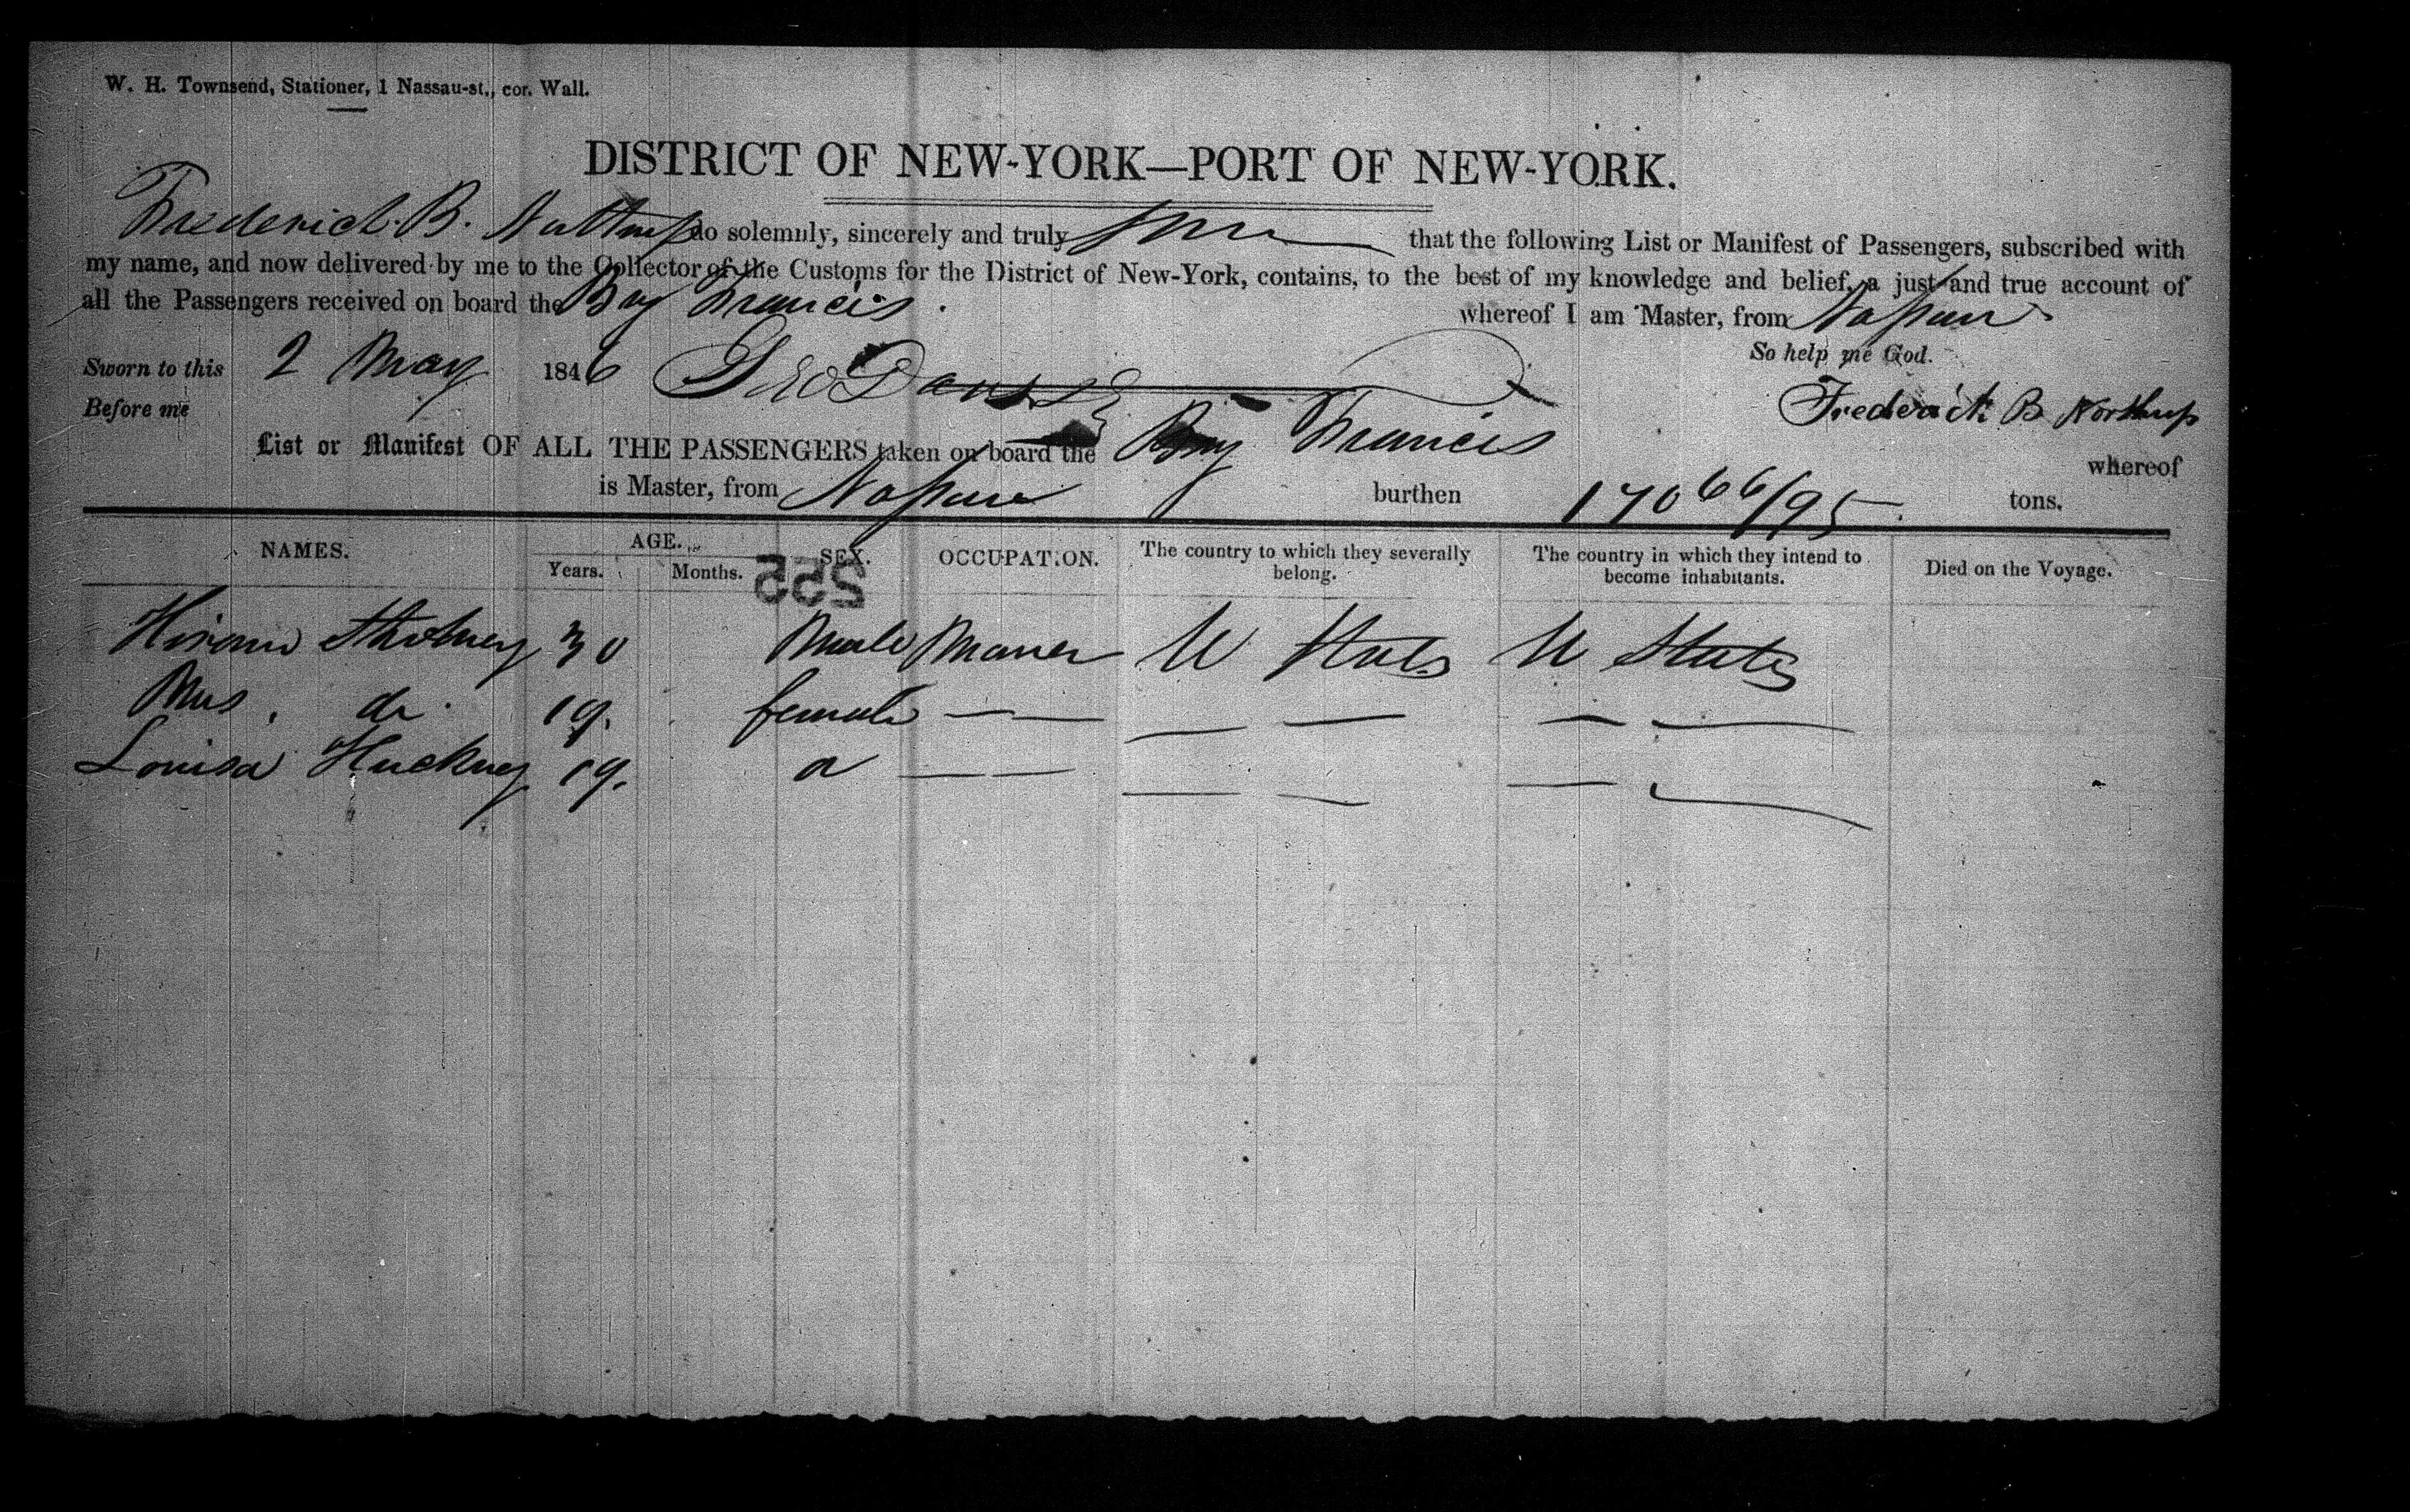 W. H. Townsend, Stationer, 1 Nassau-st., cor. Wall.
DISTRICT OF NEW-YORK—PORT OF NEW-YORK.
Frederick B. Northup do solemnly, sincerely and truly that the following List or Manifest of Passengers, subscribed with
my name, and now delivered by me to the Collector of the Customs for the District of New-York, contains, to the best of my knowledge and belief, a just and true account of
all the Passengers received on board the Francis. whereof I am Master, from Nassau
So help me God.
Sworn to this 2 May 1846 Geo
Before me Frederick B Northup
List or Manifest OF ALL THE PASSENGERS taken on board the Francis whereof
is Master, from Nassau burthen 170 66/95. tons.
NAMES. AGE. Years. Months. SEX. OCCUPATION. The country to which they severally belong. The country in which they intend to become inhabitants. Died on the Voyage.
255
Hiram 30 Male U States U States
Mrs. do. 19. female — — — — — —
Louisa 19. — — — — — —